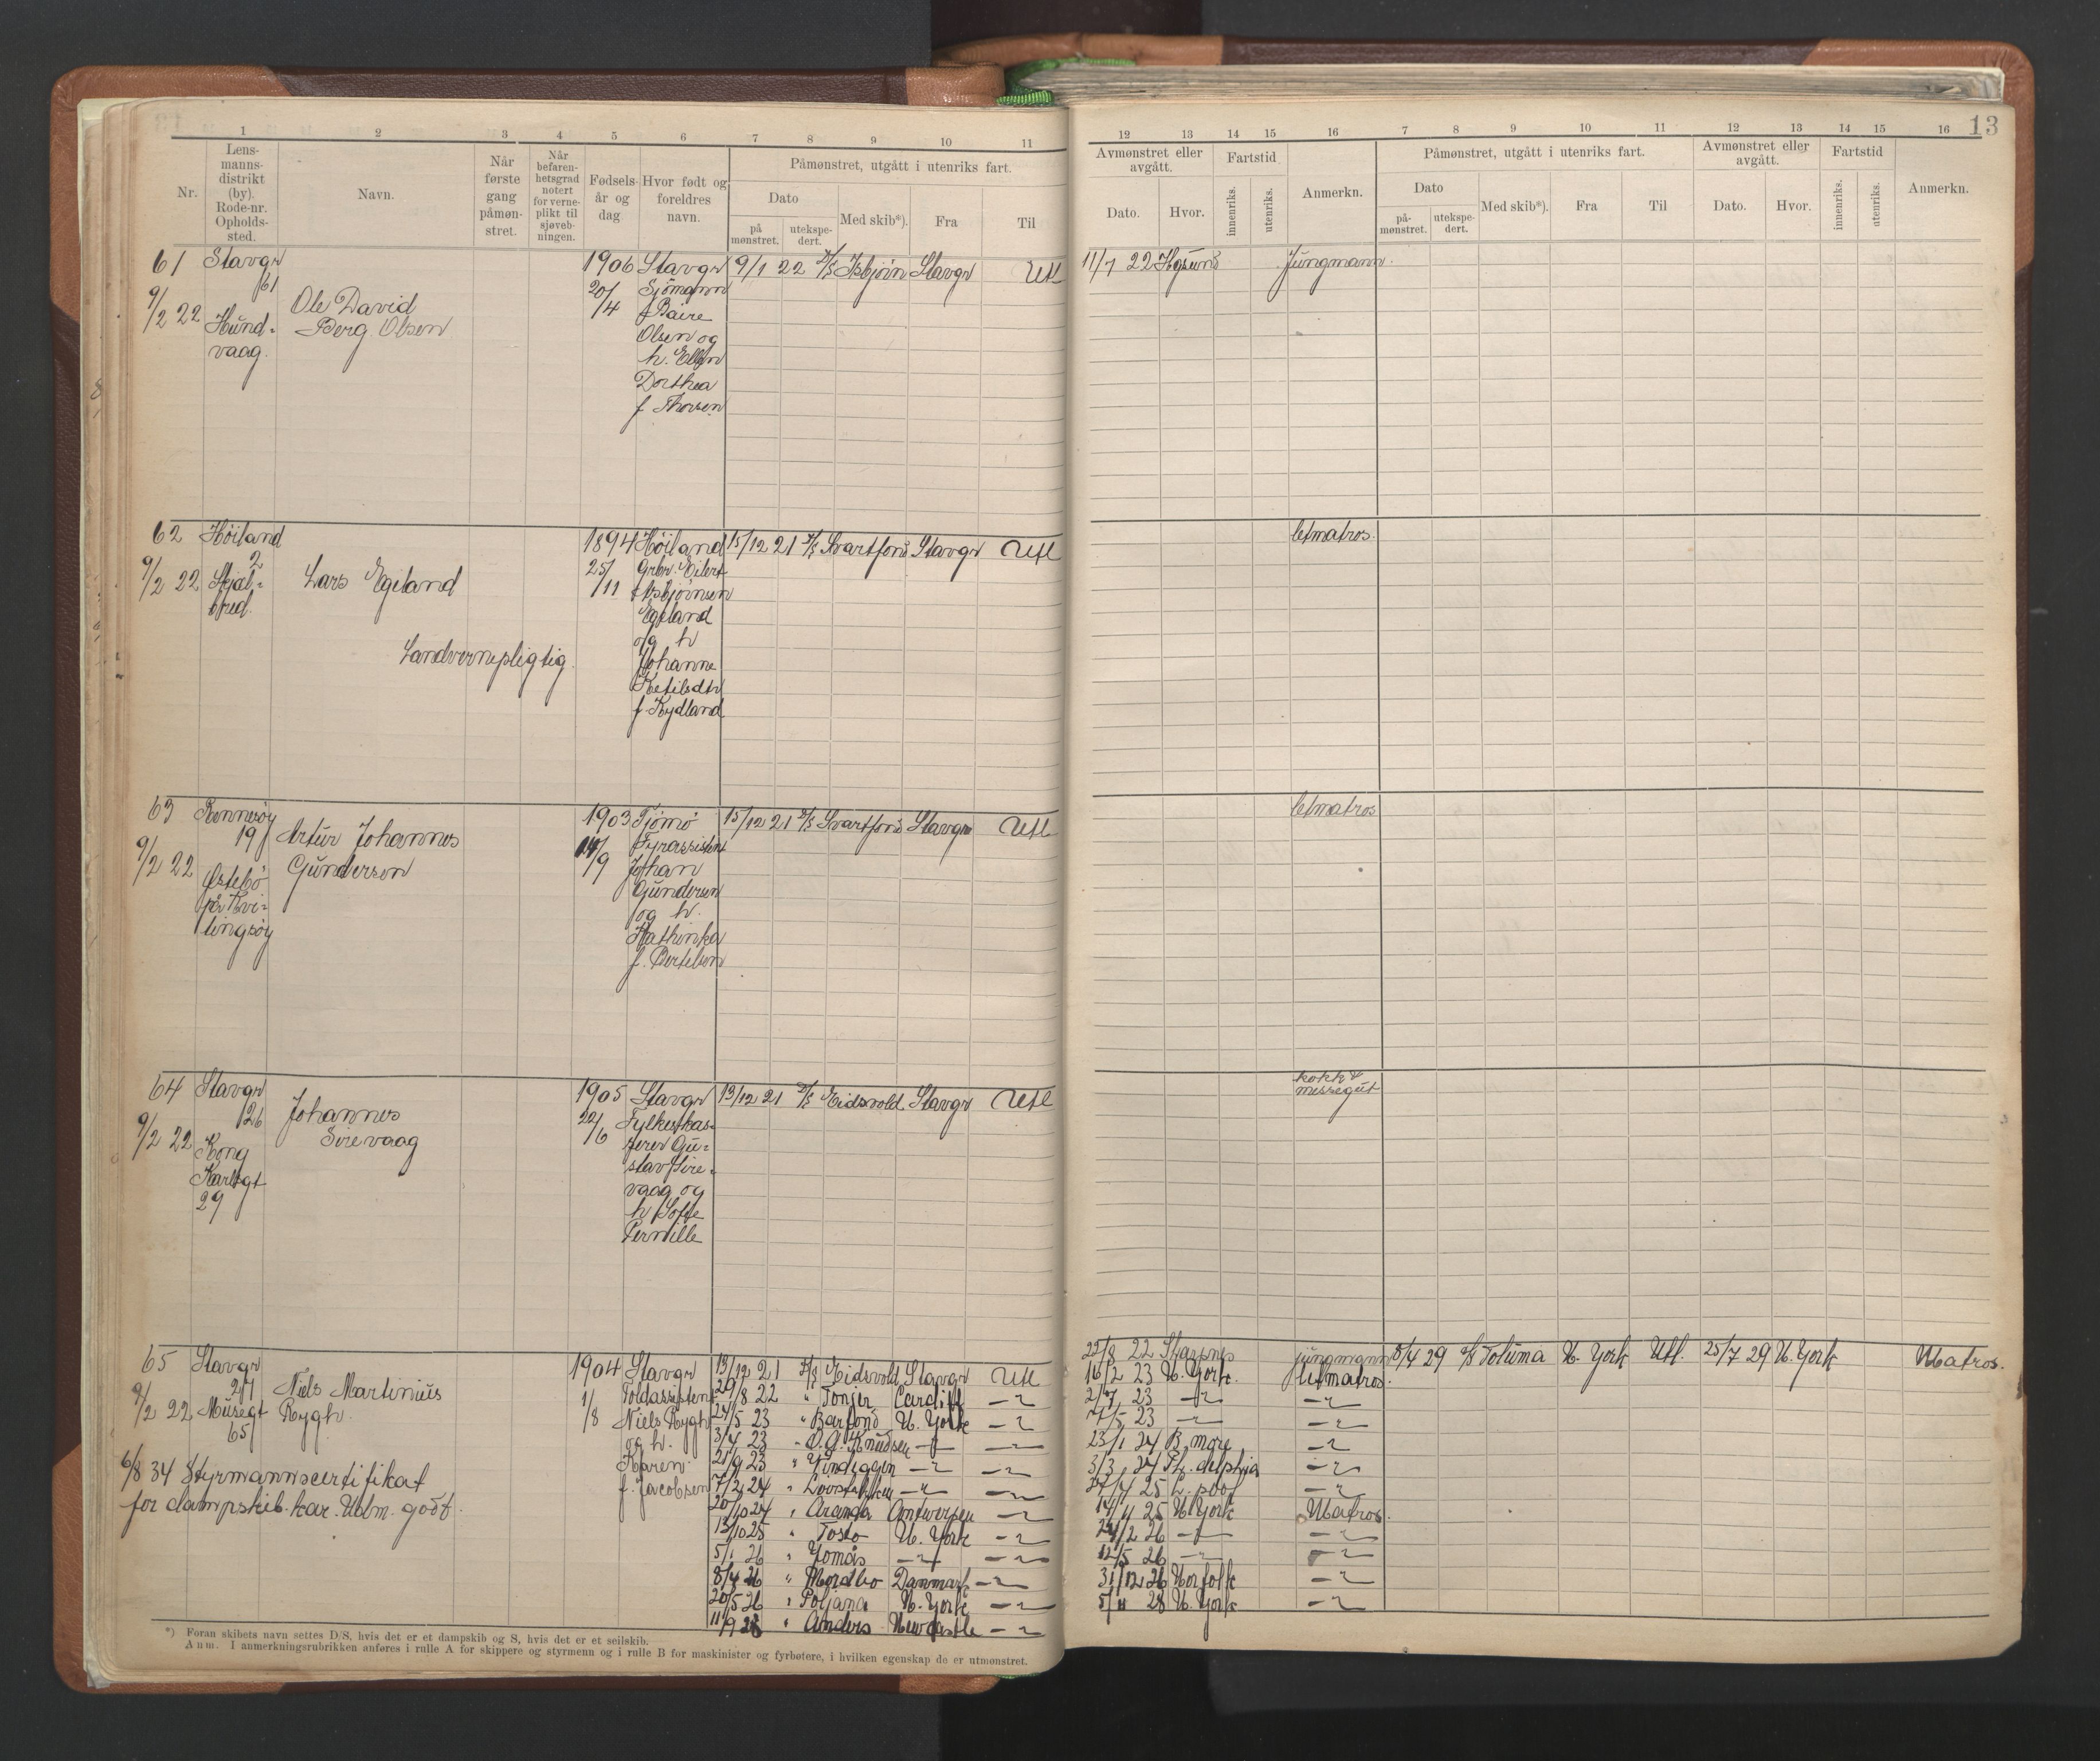 13
1 2 3 4 5 6 7 8 9 10 11
Nr.
Lens-
manns-
distrikt
(by).
Rode-nr.
Opholds-
sted.
Navn.
Når
første
gang
påmøn-
stret.
Når
befaren-
hetsgrad
notert
for verne-
plikt til
sjøveb-
ningen.
Fødsels-
år og
dag
Hvor født og
foreldres
navn.
Påmønstret, utgått i utenriks fart.
Dato
på
mønstret.
utekspe-
dert.
Med skib*).
Fra
Til
12 13 14 15 16 7 8 9 10 11 12 13 14 15 16
Avmønstret eller
avgått.
Dato.
Hvor.
Fartstid
innenriks.
utenriks.
Anmerkn.
Påmønstret, utgått i utenriks fart.
Dato
på-
mønstret.
utekspe-
dert.
Med skib*).
Fra
Til
Avmønstret eller
avgått.
Dato.
Hvor.
Fartstid
innenriks.
utenriks.
Anmerkn.
61 Stavgr
61
9/2 22 Hund-
vaag.
Ole David
Berg Olsen
1906
20/
/4
Stavgr
Sjömann
f Baire
Olsen og
h. Ellen
Dorthea
f Thorsen
9/1 22 D/S Isbjørn Stavgr Utl
11/7 22 Hgsund Jungmann.
62 Høiland
2
9/2 22 Skjæl-
bred.
Lars Egeland
Landvernepligtig.
1894
25/
/11
Høiland
Grbr. Eilert
Asbjørnsen
Egeland
og h
Johanne
Ketilsdtr
f. Kydland
15/12 21 D/S Svartfond Stavgr Utl
letmatros.
63 Rennesøy
19
9/2 22 Østebö
på Kvi-
tingsøy
Artur Johannes
Gunderson
1903
14/
/9
Tjömö
Fyrassistent
Johan
Gundersen
og h.
Kathinka
f. Bertelsen
15/12 21 D/S Svartfond Stavgr Utl
letmatros
64 Stavgr
26
9/2 22 Kong
Karlsgt
29
Johannes
Sirevaag
1905
22/
/6
Stavgr
Fylkeskas-
serer Gu-
stav Sire-
vaag og
h Sofie
Pernille
13/12 21 D/S Eidsvold Stavgr Utl
kokk &
messegut
65 Stavgr
9/2 22 Musegt
65
Niels Martinius
Rygh.
6/8 34 Styrmannscertifikat
for dampskib.
1904
1/
/8
Stavgr
Toldassistent
Niels Rygh
og h.
Karen
f. Jacobsen
13/12 21 D/S Eidsvold Stavgr Utl
/8 22 " Tonjer Cardiff —"—
24/5 23 " Barfond N. York —"—
3/7 23 " O. A. Knudsen —"— —"—
21/9 23 " Vindeggen —"— —"—
7/2 24 " —"— —"—
20/10 24 " Aranda Antwerpen —"—
13/10 25 " Tosto N. York —"—
5/1 26 " Yomås —"— —"—
8/4 26 " Nordbo Danmark —"—
20/5 26 " Poljana N. York —"—
11/9 28 " Anders Newcastle —"—
22/8 22 Sharpnes jungmann
16/2 23 N. York. letmatros.
2/7 23 —"— —"—
7/5 23 —"— —"—
23/1 24 B. more —"—
3/3 24 Ph. delphia —"—
/4 25 L. pool —"—
/4 25 N. York Matros.
24/2 26 —"— —"—
12/5 26 —"— —"—
31/12 26 Norfolk —"—
5/11 28 N. York —"—
5/4 29 D/S Toluma N. York Utl. 25/7 29 N. York Matros.
*) Foran skibets navn settes D/S, hvis det er et dampskib og S, hvis det er et seilskib.
Anm. I anmerkningsrubrikken anføres i rulle A for skippere og styrmenn og i rulle B for maskinister og fyrbøtere, i hvilken egenskap de er utmønstret.